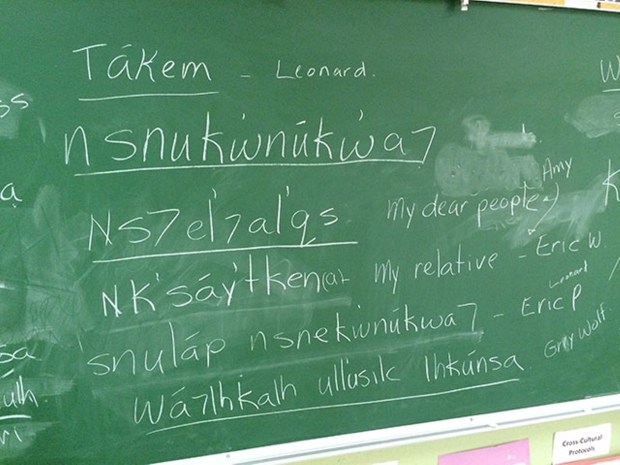 Tákem - Leonard.
nsnuk̓wnúk̓wa7
Ns7el̓7al̓qs. My dear people Amy
NK̓sáy̓tken(a). My relative - Eric W.
snuláp nsnek̓wnúkwa7 - Eric P Leonard
Wá7lhkalh ull̓usilc lhkúnsa Grey Wolf.
Cross-Cultural
Protocols